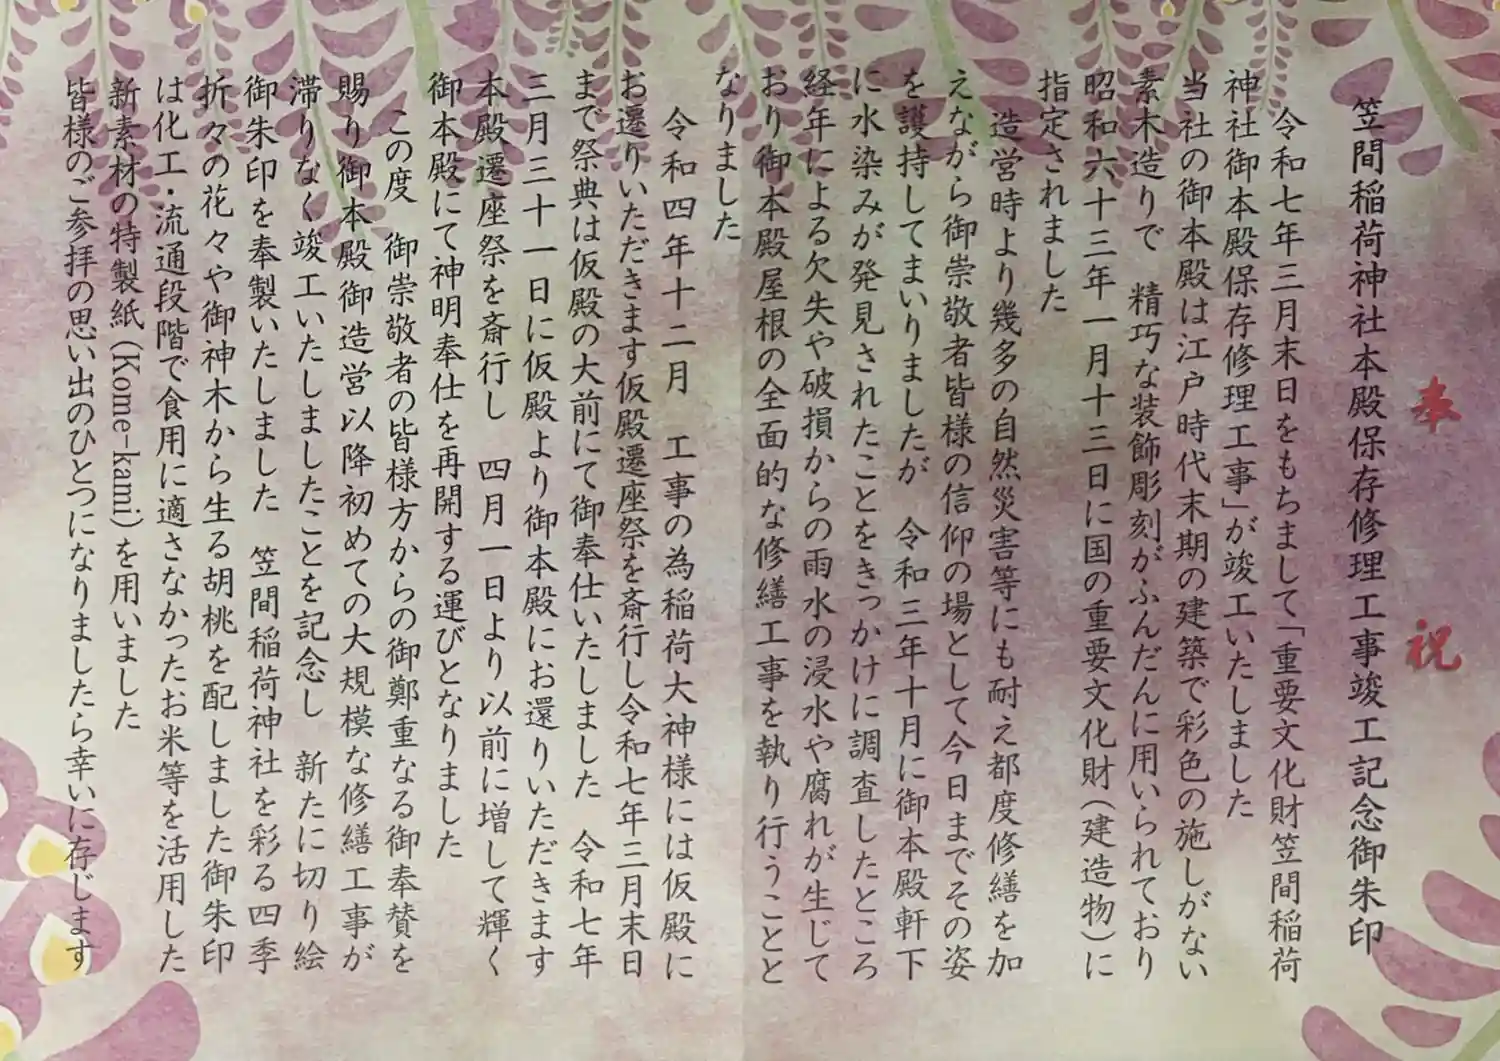 奉祝
笠間稲荷神社本殿保存修理工事竣工記念御朱印
令和七年三月末日をもちまして「重要文化財笠間稲荷
神社御本殿保存修理工事」が竣工いたしました
当社の御本殿は江戸時代末期の建築で彩色の施しがない
素木造りで　精巧な装飾彫刻がふんだんに用いられており
昭和六十三年一月十三日に国の重要文化財（建造物）に
指定されました
造営時より幾多の自然災害等にも耐え都度修繕を加
えながら御崇敬者皆様の信仰の場として今日までその姿
を護持してまいりましたが　令和三年十月に御本殿軒下
に水染みが発見されたことをきっかけに調査したところ
経年による欠失や破損からの雨水の浸水や腐れが生じて
おり御本殿屋根の全面的な修繕工事を執り行うことと
なりました
令和四年十二月　工事の為稲荷大神様には仮殿に
お遷りいただきます仮殿遷座祭を斎行し令和七年三月末日
まで祭典は仮殿の大前にて御奉仕いたしました　令和七年
三月三十一日に仮殿より御本殿にお還りいただきます
本殿遷座祭を斎行し　四月一日より以前に増して輝く
御本殿にて神明奉仕を再開する運びとなりました
この度　御崇敬者の皆様方からの御鄭重なる御奉賛を
賜り御本殿御造営以降初めての大規模な修繕工事が
滞りなく竣工いたしましたことを記念し　新たに切り絵
御朱印を奉製いたしました　笠間稲荷神社を彩る四季
折々の花々や御神木から生る胡桃を配しました御朱印
は化工・流通段階で食用に適さなかったお米等を活用した
新素材の特製紙（Kome-kami）を用いました
皆様のご参拝の思い出のひとつになりましたら幸いに存じます